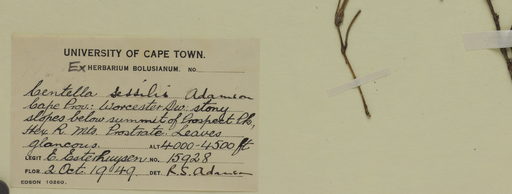 UNIVERSITY OF CAPE TOWN.
Ex HERBARIUM BOLUSIANUM. NO.
Centella sessilis Adamson
Cape Prov: Worcester Div: stony
slopes below summit of Prospect Pk,
Hex R. Mts. Prostrate. Leaves
glaucous. ALT. 4000-4500 ft
LEGIT E. Esterhuysen NO. 15928
FLOR. 2 Oct. 1949. DET. R.S. Adamson
EDSON 10260.